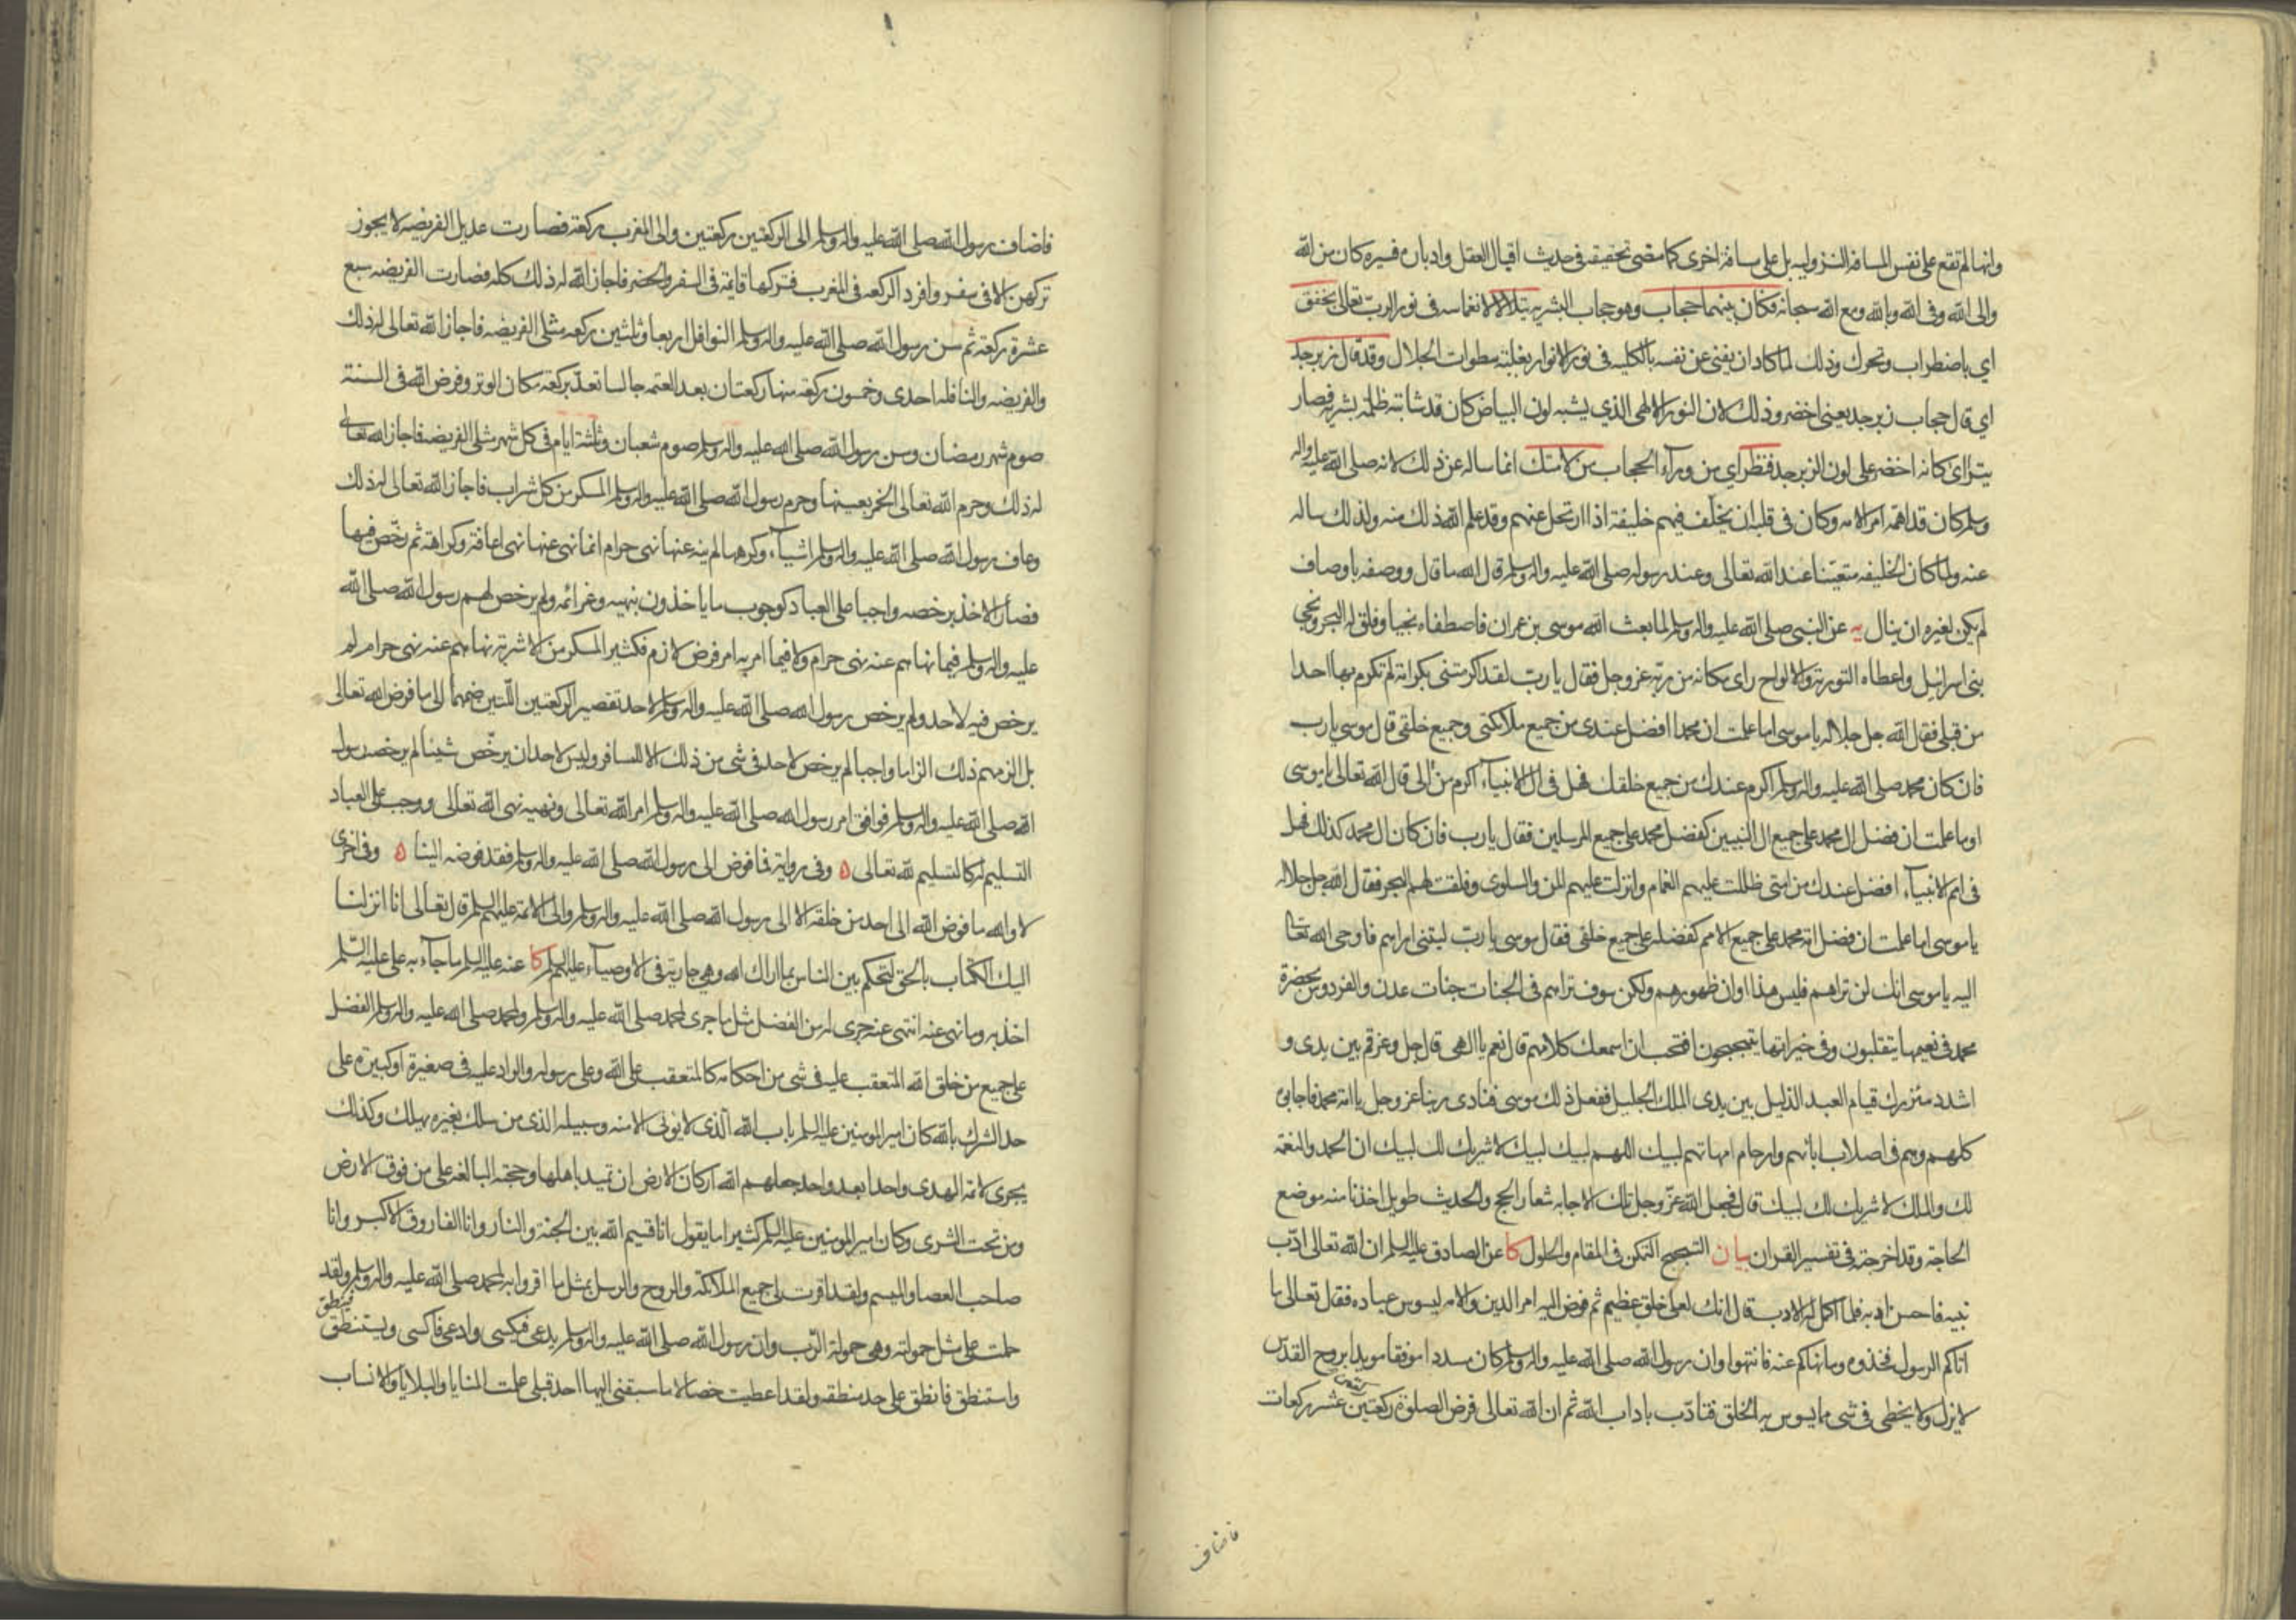 وانها لم تقع على نفس المسافة النزوليه بل على مسافة اخرى كما مضى تحقيقه فى حديث اقبال العقل وادباره فسيره كان من الله
والى الله وفى الله وبالله ومع الله سبحانه فكان بينهما حجاب وهو حجاب البشريه يتلالا لانغماسه فى نور الرب تعالى يخفق
اي باضطراب وتحرك وذلك لما كاد ان يفنى عن نفسه بالكليه فى نور الانوار بغلبة سطوات الجلال وقد قال زبرجد
اي قال حجاب زبرجد يعنى اخضر وذلك لان النور الالهى الذي يشبه لون البياض كان قد شابته ظلمة بشريه فصار
يتراى كانه اخضر على لون الزبرجد فنظر اي من ورآء الحجاب من لامتك انما ساله عن ذلك لانه صلى الله عليه واله
وسلم كان قد اهمه امر الامه وكان فى قلبه ان يخلف فيهم خليفة اذا ارتحل عنهم وقد علم الله ذلك منه ولذلك ساله
عنه ولما كان الخليفه متعينا عند الله تعالى وعند رسوله صلى الله عليه واله وسلم قال الله ما قال ووصفه باوصاف
لم يكن لغيره ان ينال يه عن النبى صلى الله عليه واله وسلم لما بعث الله موسى بن عمران فاصطفاه نجيا وفلق له البحر ونجى
بنى اسرائيل واعطاه التورية والالواح راى مكانه من ربه عز وجل فقال يا رب لقد اكرمتنى بكرامة لم تكرم بها احدا
من قبلى فقال الله جل جلاله يا موسى اما علمت ان محمدا افضل عندى من جميع ملائكتى وجميع خلقى قال موسى يا رب
فان كان محمد صلى الله عليه واله وسلم اكرم عندك من جميع خلقك فهل فى ال الانبيآء اكرم من الى قال الله تعالى يا موسى
اوما علمت ان فضل ال محمد على جميع ال النبيين كفضل محمد على جميع المرسلين فقال يا رب فان كان ال محمد كذلك فهل
فى امم الانبيآء افضل عندك من امتى ظللت عليهم الغمام وانزلت عليهم المن والسلوى وفلقت لهم البحر فقال الله جل جلاله
يا موسى اما علمت ان فضل امة محمد على جميع الامم كفضله على جميع خلقى فقال موسى يا رب ليتنى اراهم فاوحى الله تعا
اليه يا موسى انك لن تراهم فليس هذا اوان ظهورهم ولكن سوف تراهم فى الجنات جنات عدن والفردوس بحضرة
محمد فى نعيمها يتقلبون وفى خيراتها يتبحبحون افتحب ان اسمعك كلامهم قال نعم يا الهى قال جل وعز قم بين يدى و
اشدد مئزرك قيام العبد الذليل بين يدى الملك الجليل ففعل ذلك موسى فنادى ربنا عز وجل يا امة محمد فاجابوه
كلهم وهم فى اصلاب ابائهم وارحام امهاتهم لبيك اللهم لبيك لبيك لا شريك لك لبيك ان الحمد والنعمة
لك والملك لا شريك لك لبيك قال فجعل الله عز وجل تلك الاجابه شعار الحج والحديث طويل اخذنا منه موضع
الحاجة وقد اخرجته فى تفسير القران بيان التبحبح التمكن فى المقام والحلول كا عن الصادق عليه السلم ان الله تعالى ادب
نبيه فاحسن ادبه فلما اكمل له الادب قال انك لعلى خلق عظيم ثم فوض اليه امر الدين والامه ليسوس عباده فقال تعالى ما
اتاكم الرسول فخذوه وما نهاكم عنه فانتهوا وان رسول الله صلى الله عليه واله وسلم كان مسددا موفقا مويدا بروح القدس
لا يزل ولا يخطى فى شى مما يسوس به الخلق فتادب باداب الله ثم ان الله تعالى فرض الصلوة ركعتين ركعتين عشر ركعات
فاضاف
فاضاف رسول الله صلى الله عليه واله وسلم الى الركعتين ركعتين والى المغرب ركعة فصارت عديل الفريضه لا يجوز
تركهن الا فى سفر وافرد الركعه فى المغرب فتركها قايمة فى السفر والحضر فاجاز الله له ذلك كله فصارت الفريضه سبع
عشرة ركعة ثم سن رسول الله صلى الله عليه واله وسلم النوافل اربعا وثلثين ركعه مثلى الفريضه فاجاز الله تعالى له ذلك
والفريضه والنافله احدى وخمسون ركعة منها ركعتان بعد العتمه جالسا تعد بركعه مكان الوتر وفرض الله فى السنة
صوم شهر رمضان وسن رسول الله صلى الله عليه واله وسلم صوم شعبان وثلثة ايام فى كل شهر مثلى الفريضه فاجاز الله تعالى
له ذلك وحرم الله تعالى الخمر بعينها وحرم رسول الله صلى الله عليه واله وسلم المسكر من كل شراب فاجاز الله تعالى له ذلك
وعاف رسول الله صلى الله عليه واله وسلم اشيآء وكرهها لم ينه عنها نهى حرام انما نهى عنها نهى اعافة وكراهة ثم رخص فيها
فصار الاخذ برخصه واجبا على العباد كوجوب ما ياخذون بنهيه وعزائمه ولم يرخص لهم رسول الله صلى الله
عليه واله وسلم فيما نهاهم عنه نهى حرام ولا فيما امر به امر فرض لازم فكثير المسكر من الاشربة نهاهم عنه نهى حرام لم
يرخص فيه لاحد ولم يرخص رسول الله صلى الله عليه واله وسلم لاحد تقصير الركعتين اللتين ضمهما الى ما فرض الله تعالى
بل الزمهم ذلك الزاما واجبا لم يرخص لاحد فى شى من ذلك الا للمسافر وليس لاحد ان يرخص شيئا لم يرخصه رسول
الله صلى الله عليه واله وسلم فوافق امر رسول الله صلى الله عليه واله وسلم امر الله تعالى ونهيه نهى الله تعالى ووجب على العباد
التسليم له كالتسليم لله تعالى ه وفى رواية فما فوض الى رسول الله صلى الله عليه واله وسلم فقد فوضه الينا ه وفى اخرى
لا والله ما فوض الله الى احد من خلقه الا الى رسول الله صلى الله عليه واله وسلم والى الائمة عليهم السلم قال تعالى انا انزلنا
اليك الكتاب بالحق لتحكم بين الناس بما اراك الله وهى جارية فى الاوصيآء عليهم السلم كا عنه عليه السلم ما جآء به على عليه السلم
اخذ به وما نهى عنه انتهى عنه جرى له من الفضل مثل ما جرى لمحمد صلى الله عليه واله وسلم ولمحمد صلى الله عليه واله وسلم الفضل
على جميع من خلق الله المتعقب عليه فى شى من احكامه كالمتعقب على الله وعلى رسوله والراد عليه فى صغيرة او كبيرة على
حد الشرك بالله كان امير المومنين عليه السلم باب الله الذى لا يوتى الا منه وسبيله الذى من سلك بغيره يهلك وكذلك
يجرى لائمة الهدى واحدا بعد واحد جعلهم الله اركان الارض ان تميد باهلها وحجته البالغه على من فوق الارض
ومن تحت الثرى وكان امير المومنين عليه السلم كثيرا ما يقول انا قسيم الله بين الجنة والنار وانا الفاروق الاكبر وانا
صاحب العصا والميسم ولقد اقرت لى جميع الملائكة والروح والرسل بمثل ما اقروا به لمحمد صلى الله عليه واله وسلم ولقد
حملت على مثل حمولته وهى حمولة الرب وان رسول الله صلى الله عليه واله وسلم يدعى فيكسى وادعى فاكسى ويستنطق فينطق
واستنطق فانطق على حد منطقه ولقد اعطيت خصالا ما سبقنى اليها احد قبلى علمت المنايا والبلايا والانساب